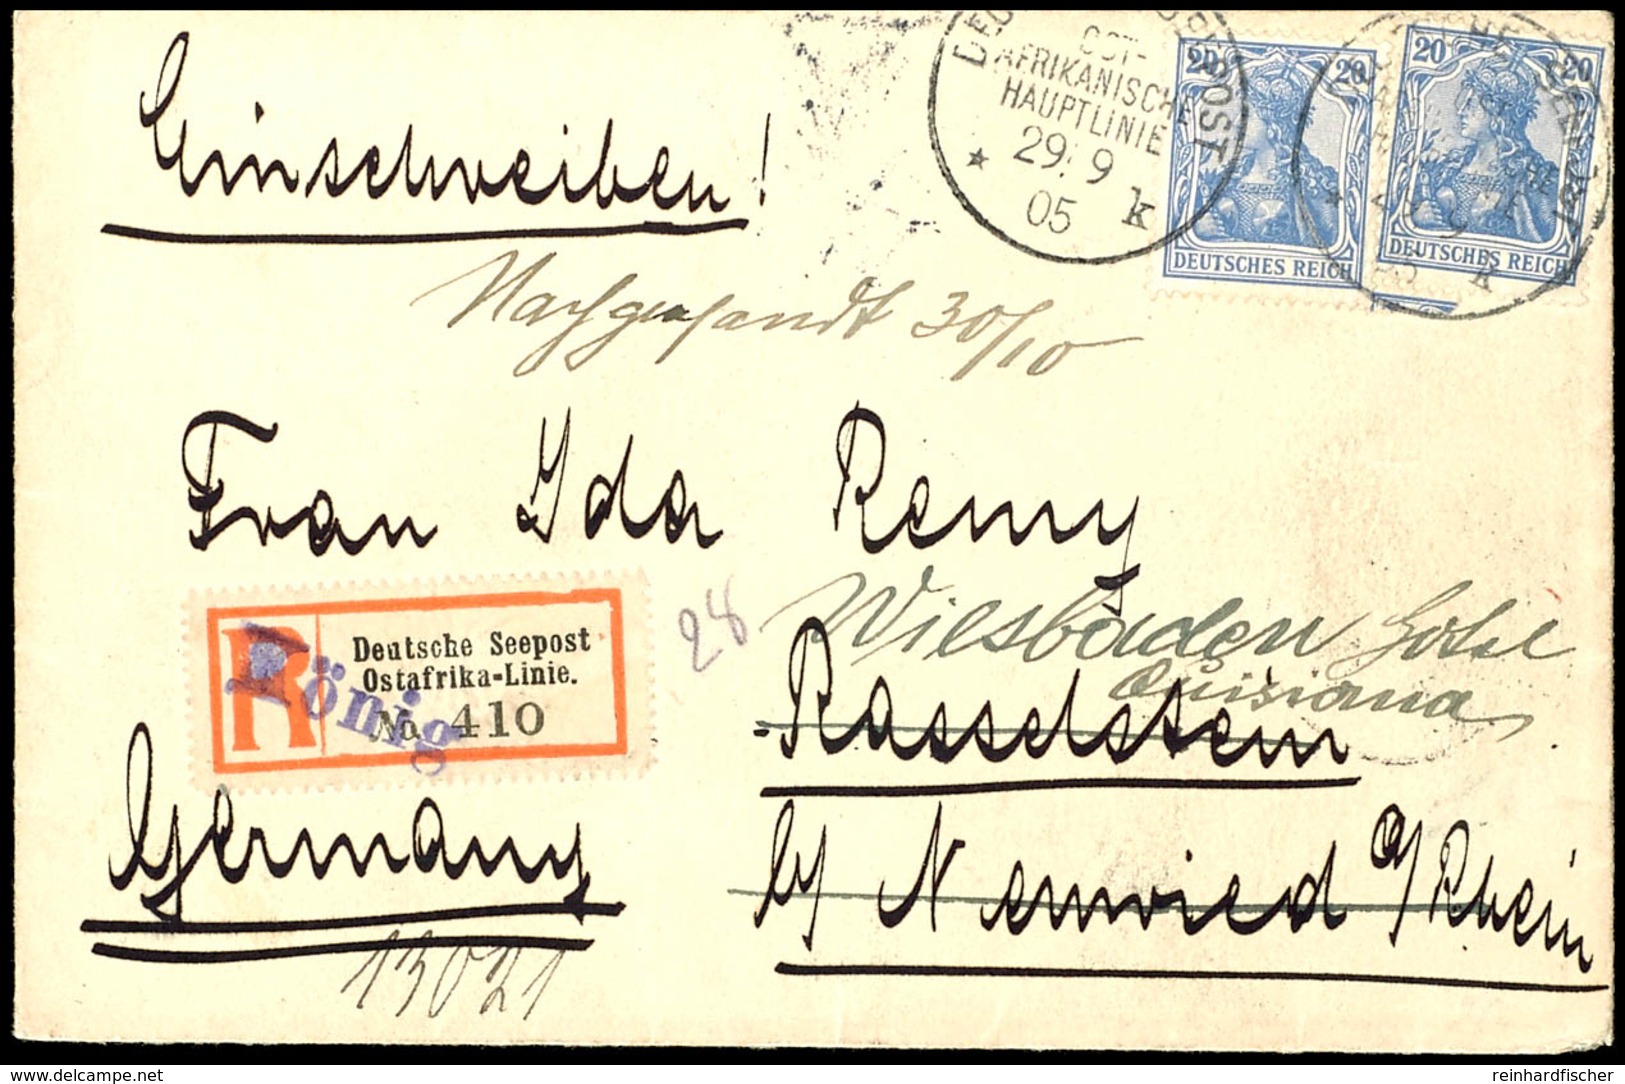 Einschreiben!
OST-
AFRIKANISCHE
HAUPTLINIE
29. 9
05 k
20 20
DEUTSCHES REICH
20 20
DEUTSCHES REICH
k
Nachgesandt 30/10
Frau Ida Remy
28
Wiesbaden Hotel
Quisisana
R
Deutsche Seepost
Ostafrika-Linie.
No 410
König
Rasselstein
b/ Neuwied a/Rhein
Germany
13021
delcampe.net
reinhardfischer